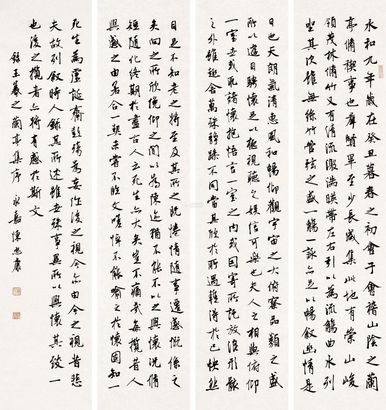 永和九年歲在癸丑暮春之初會于會稽山陰之蘭
亭脩禊事也羣賢畢至少長咸集此地有崇山峻
領茂林脩竹又有清流激湍映帶左右引以為流觴曲水列
坐其次雖無絲竹管弦之盛一觴一詠亦足以暢敘幽情是
日也天朗氣清惠風和暢仰觀宇宙之大俯察品類之盛
所以遊目騁懷足以極視聽之娛信可樂也夫人之相與俯仰
一世或取諸懷抱悟言一室之內或因寄所託放浪形骸
之外雖趣舍萬殊靜躁不同當其欣於所遇蹔得於己快然
自足不知老之將至及其所之既惓情隨事遷感慨係之
矣向之所欣俛仰之間以為陳迹猶不能不以之興懷況脩
短隨化終期於盡古人云死生亦大矣豈不痛哉每攬昔人
興感之由若合一契未嘗不臨文嗟悼不能喻之於懷固知一
死生為虛誕齊彭殤為妄作後之視今亦由今之視昔悲
夫故列敘時人錄其所述雖世殊事異所以興懷其致一
也後之攬者亦將有感於斯文
錄王羲之蘭亭集序 永嘉陳忠康